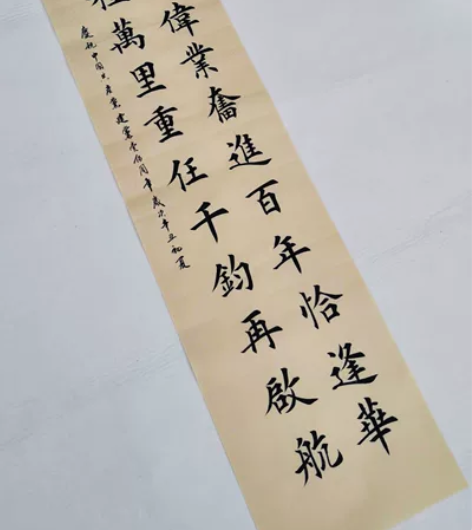 偉業奮進百年恰逢華
程萬里重任千鈞再啟航
慶祝中國共產黨建黨壹佰周年歲次辛丑初夏